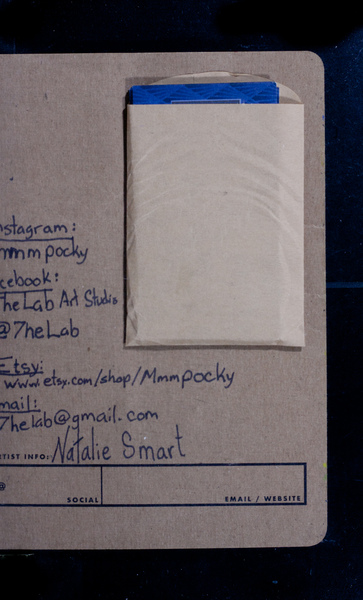 nstagram:
mmm pocky
cebook:
heLab Art Studio
@7heLab
Etsy:
www.etsy.com/shop/Mmmpocky
mail:
7helab@gmail.com
RTIST INFO: Natalie Smart
@
SOCIAL
EMAIL / WEBSITE